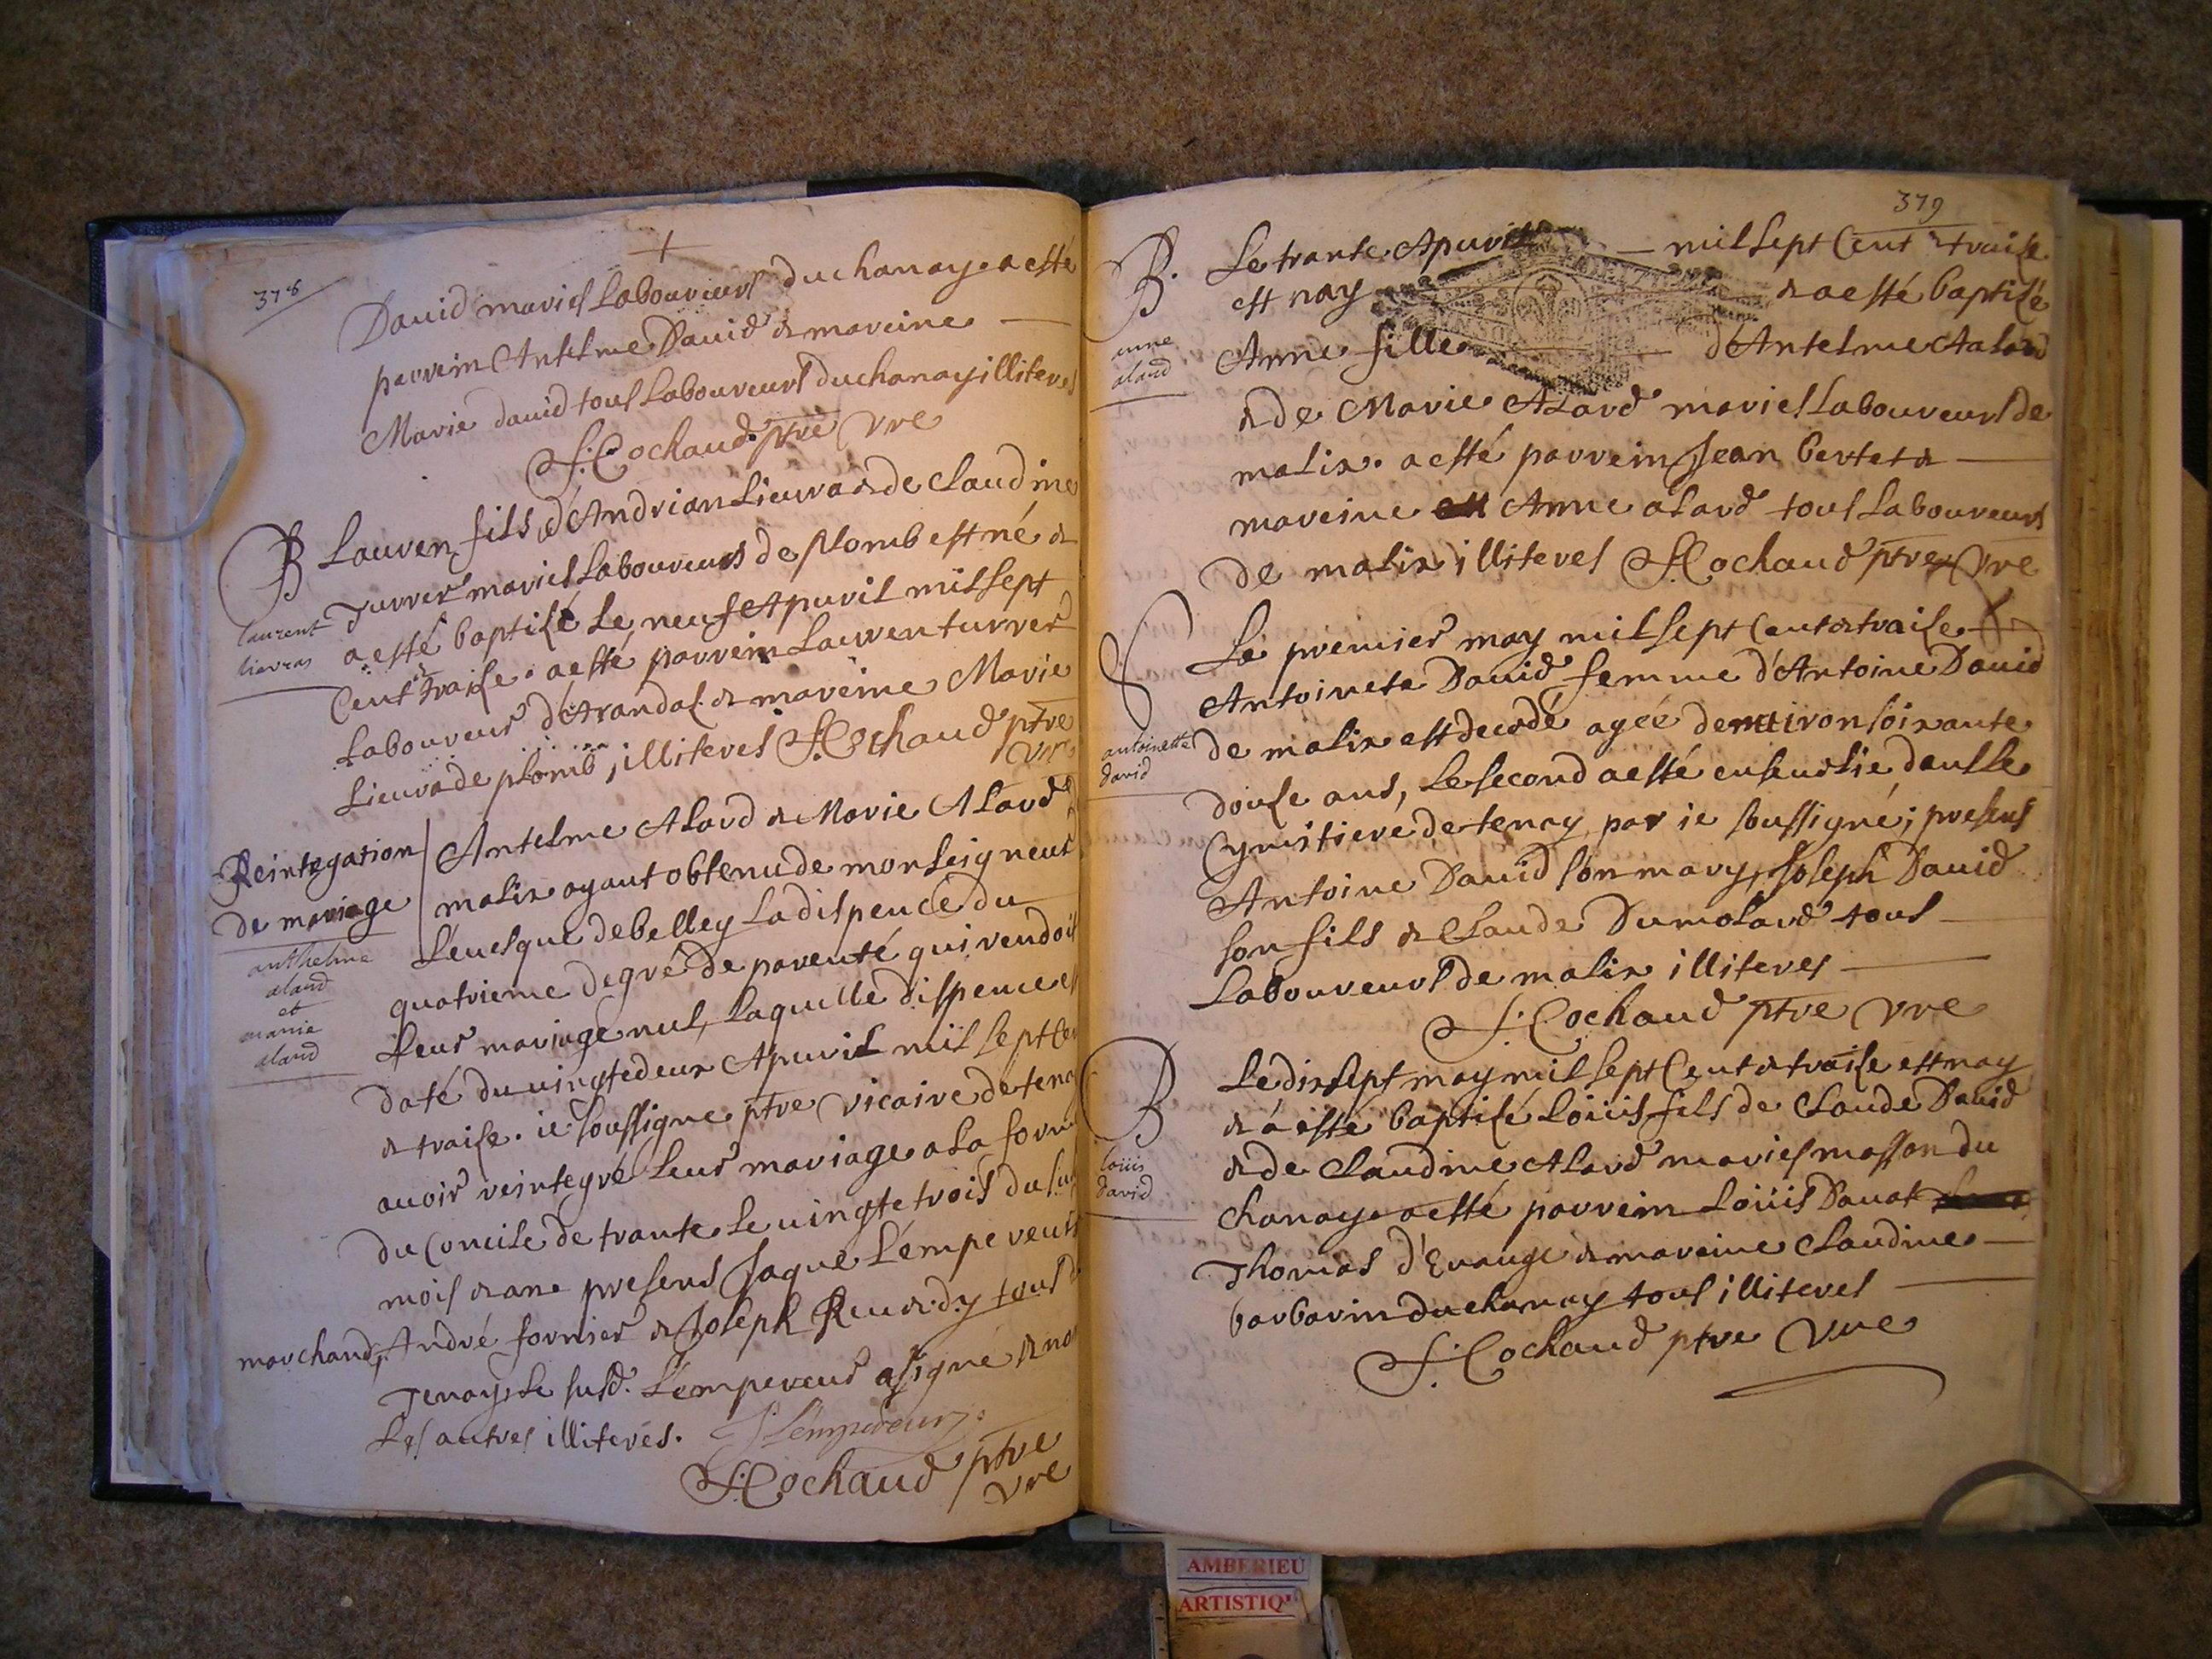 378
David mariés Laboureurs du chanay. a esté
parrein Antelme David & mareine
Marie david tous Laboureurs du chanay illiteres
F: Cochaud ptre vre
B
laurent
lieuras
Lauren fils d'Andrian Lieura & de Claudine
Turrer mariés Laboureurs de plomb est né &
a esté baptisé Le neuf Apuvril mil sept
Cent & traise. a esté parrein Lauren turrer
Laboureur d'Arandas & mareine Marie
Lieura de plomb, illiteres F: Cochaud ptre
vre
Reintegation
de mariage
anthelme
alard
et
marie
alard
Antelme Alard & Marie Alard
malix ayant obtenu de monseigneur
L'euesque de belley La dispence du
quatrieme degré de parenté qui rendoit
Leur mariage nul, Laquelle dispence est
daté du uingtedeux Apuvril mil sept Cen
& traise. ie soussigne ptre vicaire de tenay
auoir reintegré Leur mariage a La forme
du Concile de trante Le uingte trois du sus
mois & an presens Jaque L'empereur
marchand, André fornier & Joseph Reuerdy tous de
Tenay, Le susd. L'empereur a signé & non
Les autres illiterés. J Lempereur
F: Cochaud ptre
vre
379
B.
anne
alard
Le trante Apuvril mil sept Cent & traise
est nay & a esté baptisé
Anne fille d'Antelme Aalard
& de Marie Alard mariés Laboureurs de
malix. a esté parrein Jean bertet &
mareine Anne alard tous Laboureurs
de malix illiteres F: Cochaud ptre vre
S
antoinette
david
Le premier may mil sept Cent & traise
Antoinete David femme d'Antoine David
de malix est decedé agée denuiron soixante
douse ans, Le second a esté enseuelie dans Le
Cymitiere de tenay par ie soussigné; presens
Antoine David son mary, Joseph David
son fils & Claude Dumolard tous
Laboureurs de malix illiteres
F: Cochaud ptre vre
B
loüis
david
Le dixsept may mil sept Cent & traise est nay
& a esté baptisé Loüis fils de Claude David
& de Claudine Alard mariés masson du
chanay. a esté parrein Loüis Dauat
Thomas d'Euange & mareine Claudine
barbarin du chanay tous illiteres
F: Cochaud ptre vre
AMBERIEU
ARTISTIQ